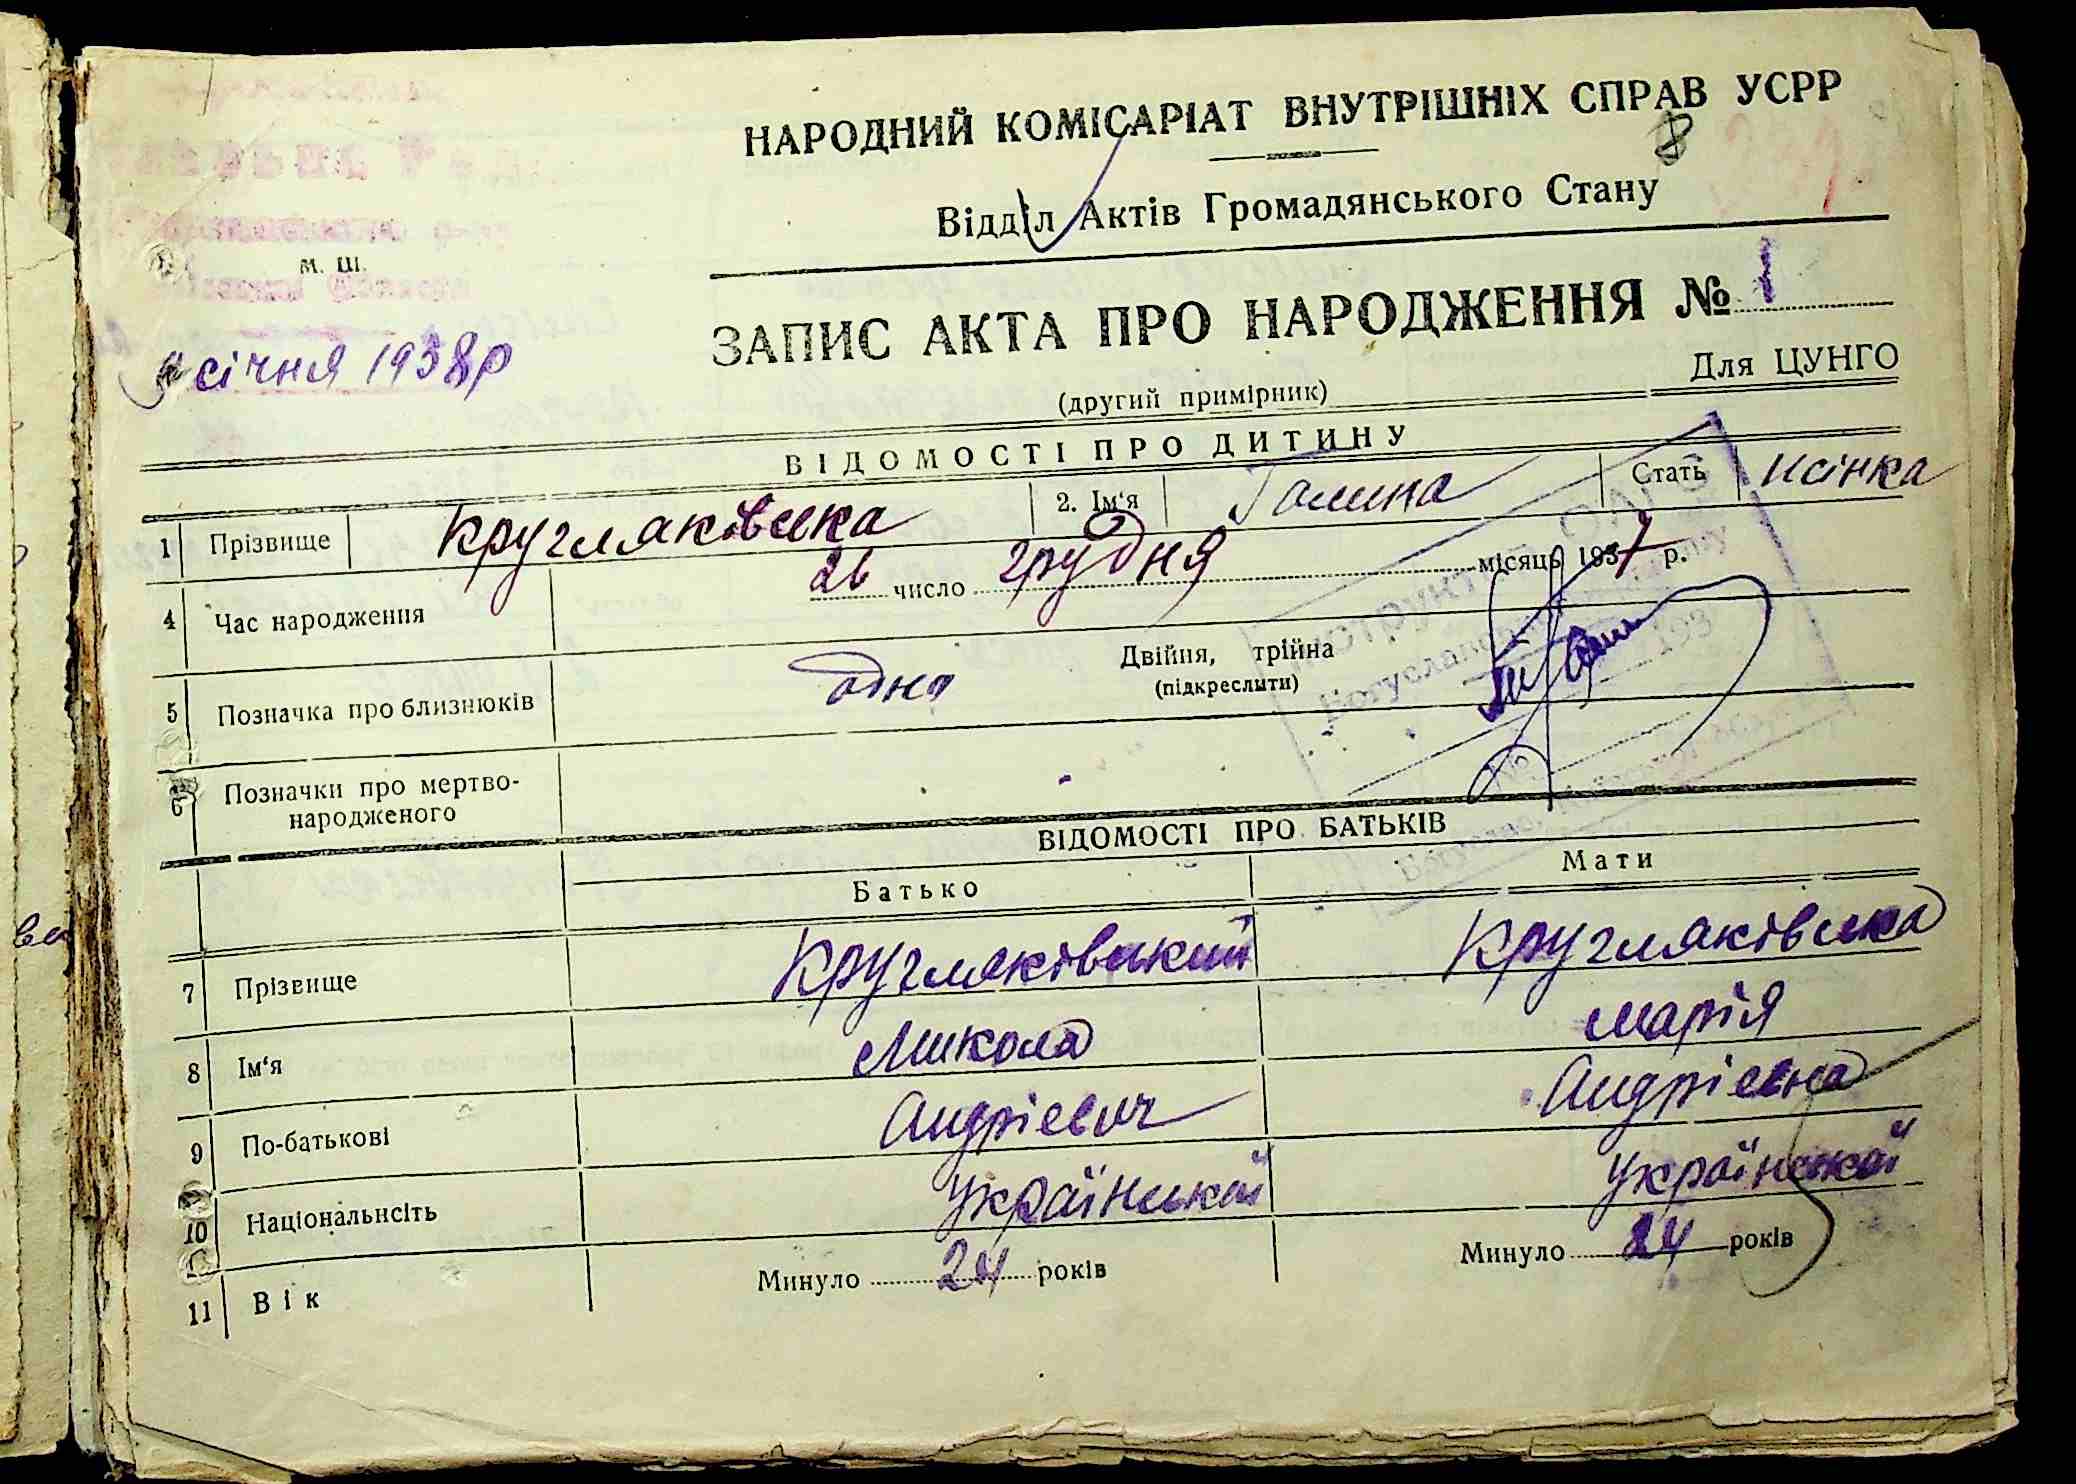 НАРОДНИЙ КОМІСАРІАТ ВНУТРІШНІХ СПРАВ УСРР
8
Відділ Актів Громадянського Стану
м. ш.
січня 1938р
ЗАПИС АКТА ПРО НАРОДЖЕННЯ № 1
(другий примірник)
Для ЦУНГО
ВІДОМОСТІ ПРО ДИТИНУ
1 Прізвище Кругляківська 2. Ім'я Галина Стать жінка
4 Час народження 26 число грудня місяць 1937 р.
5 Позначка про близнюків одна Двійня, трійна
(підкреслити)
6 Позначки про мертво-
народженого
ВІДОМОСТІ ПРО БАТЬКІВ
Батько Мати
7 Прізвище Кругляківський Кругляківська
8 Ім'я Микола Марія
9 По-батькові Андрієвич Андрієвна
10 Національнсіть Української Української
11 Вік Минуло 24 років Минуло 24 років